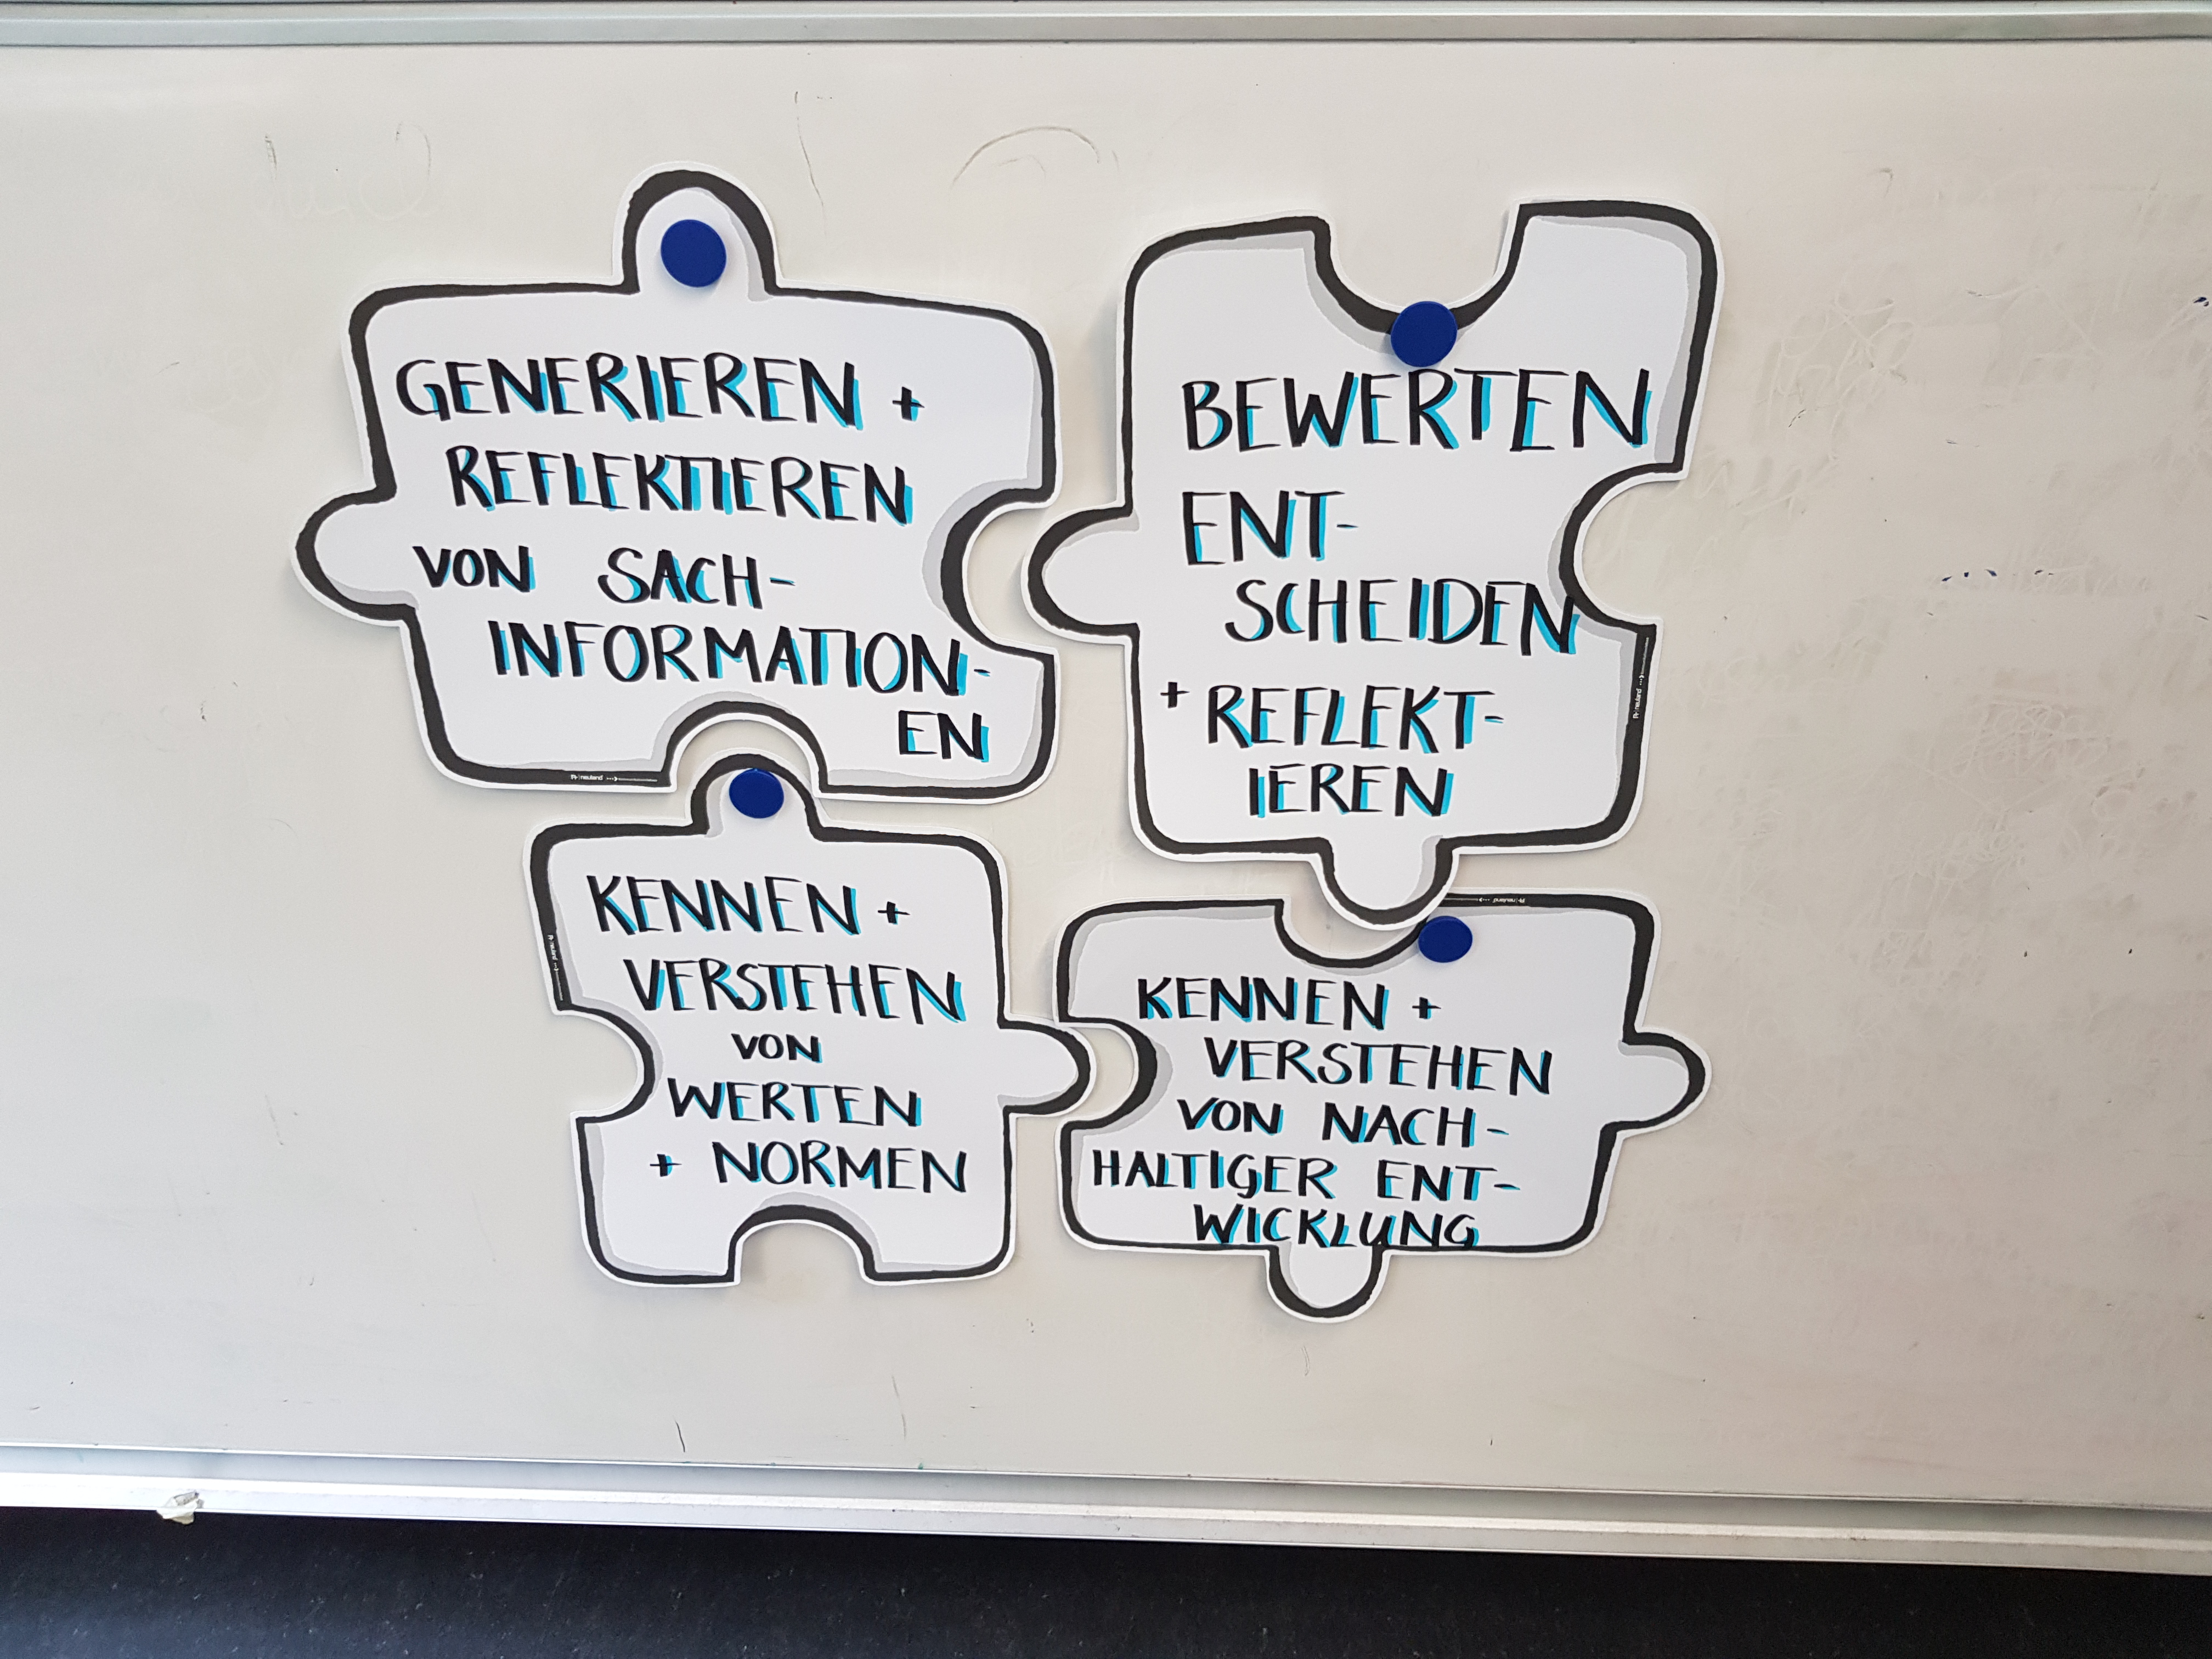 GENERIEREN +
REFLEKTIEREN
VON SACH-
INFORMATION-
EN
BEWERTEN
ENT-
SCHEIDEN
+ REFLEKT-
IEREN
KENNEN +
VERSTEHEN
VON
WERTEN
+ NORMEN
KENNEN +
VERSTEHEN
VON NACH-
HALTIGER ENT-
WICKLUNG
neuland
neuland
neuland
neuland